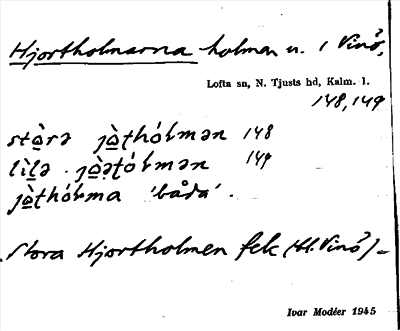 Hjortholmarna holmar n. i Vinö,
Lofta sn, N. Tjusts hd, Kalm. l.
148, 149
stòrə jòṭhólmən 148
lìḷə jòəṭólmən 149
jòṭhólma 'båda'.
Stora Hjortholmen fek (Hl. Vinö) –
Ivar Modéer 1945